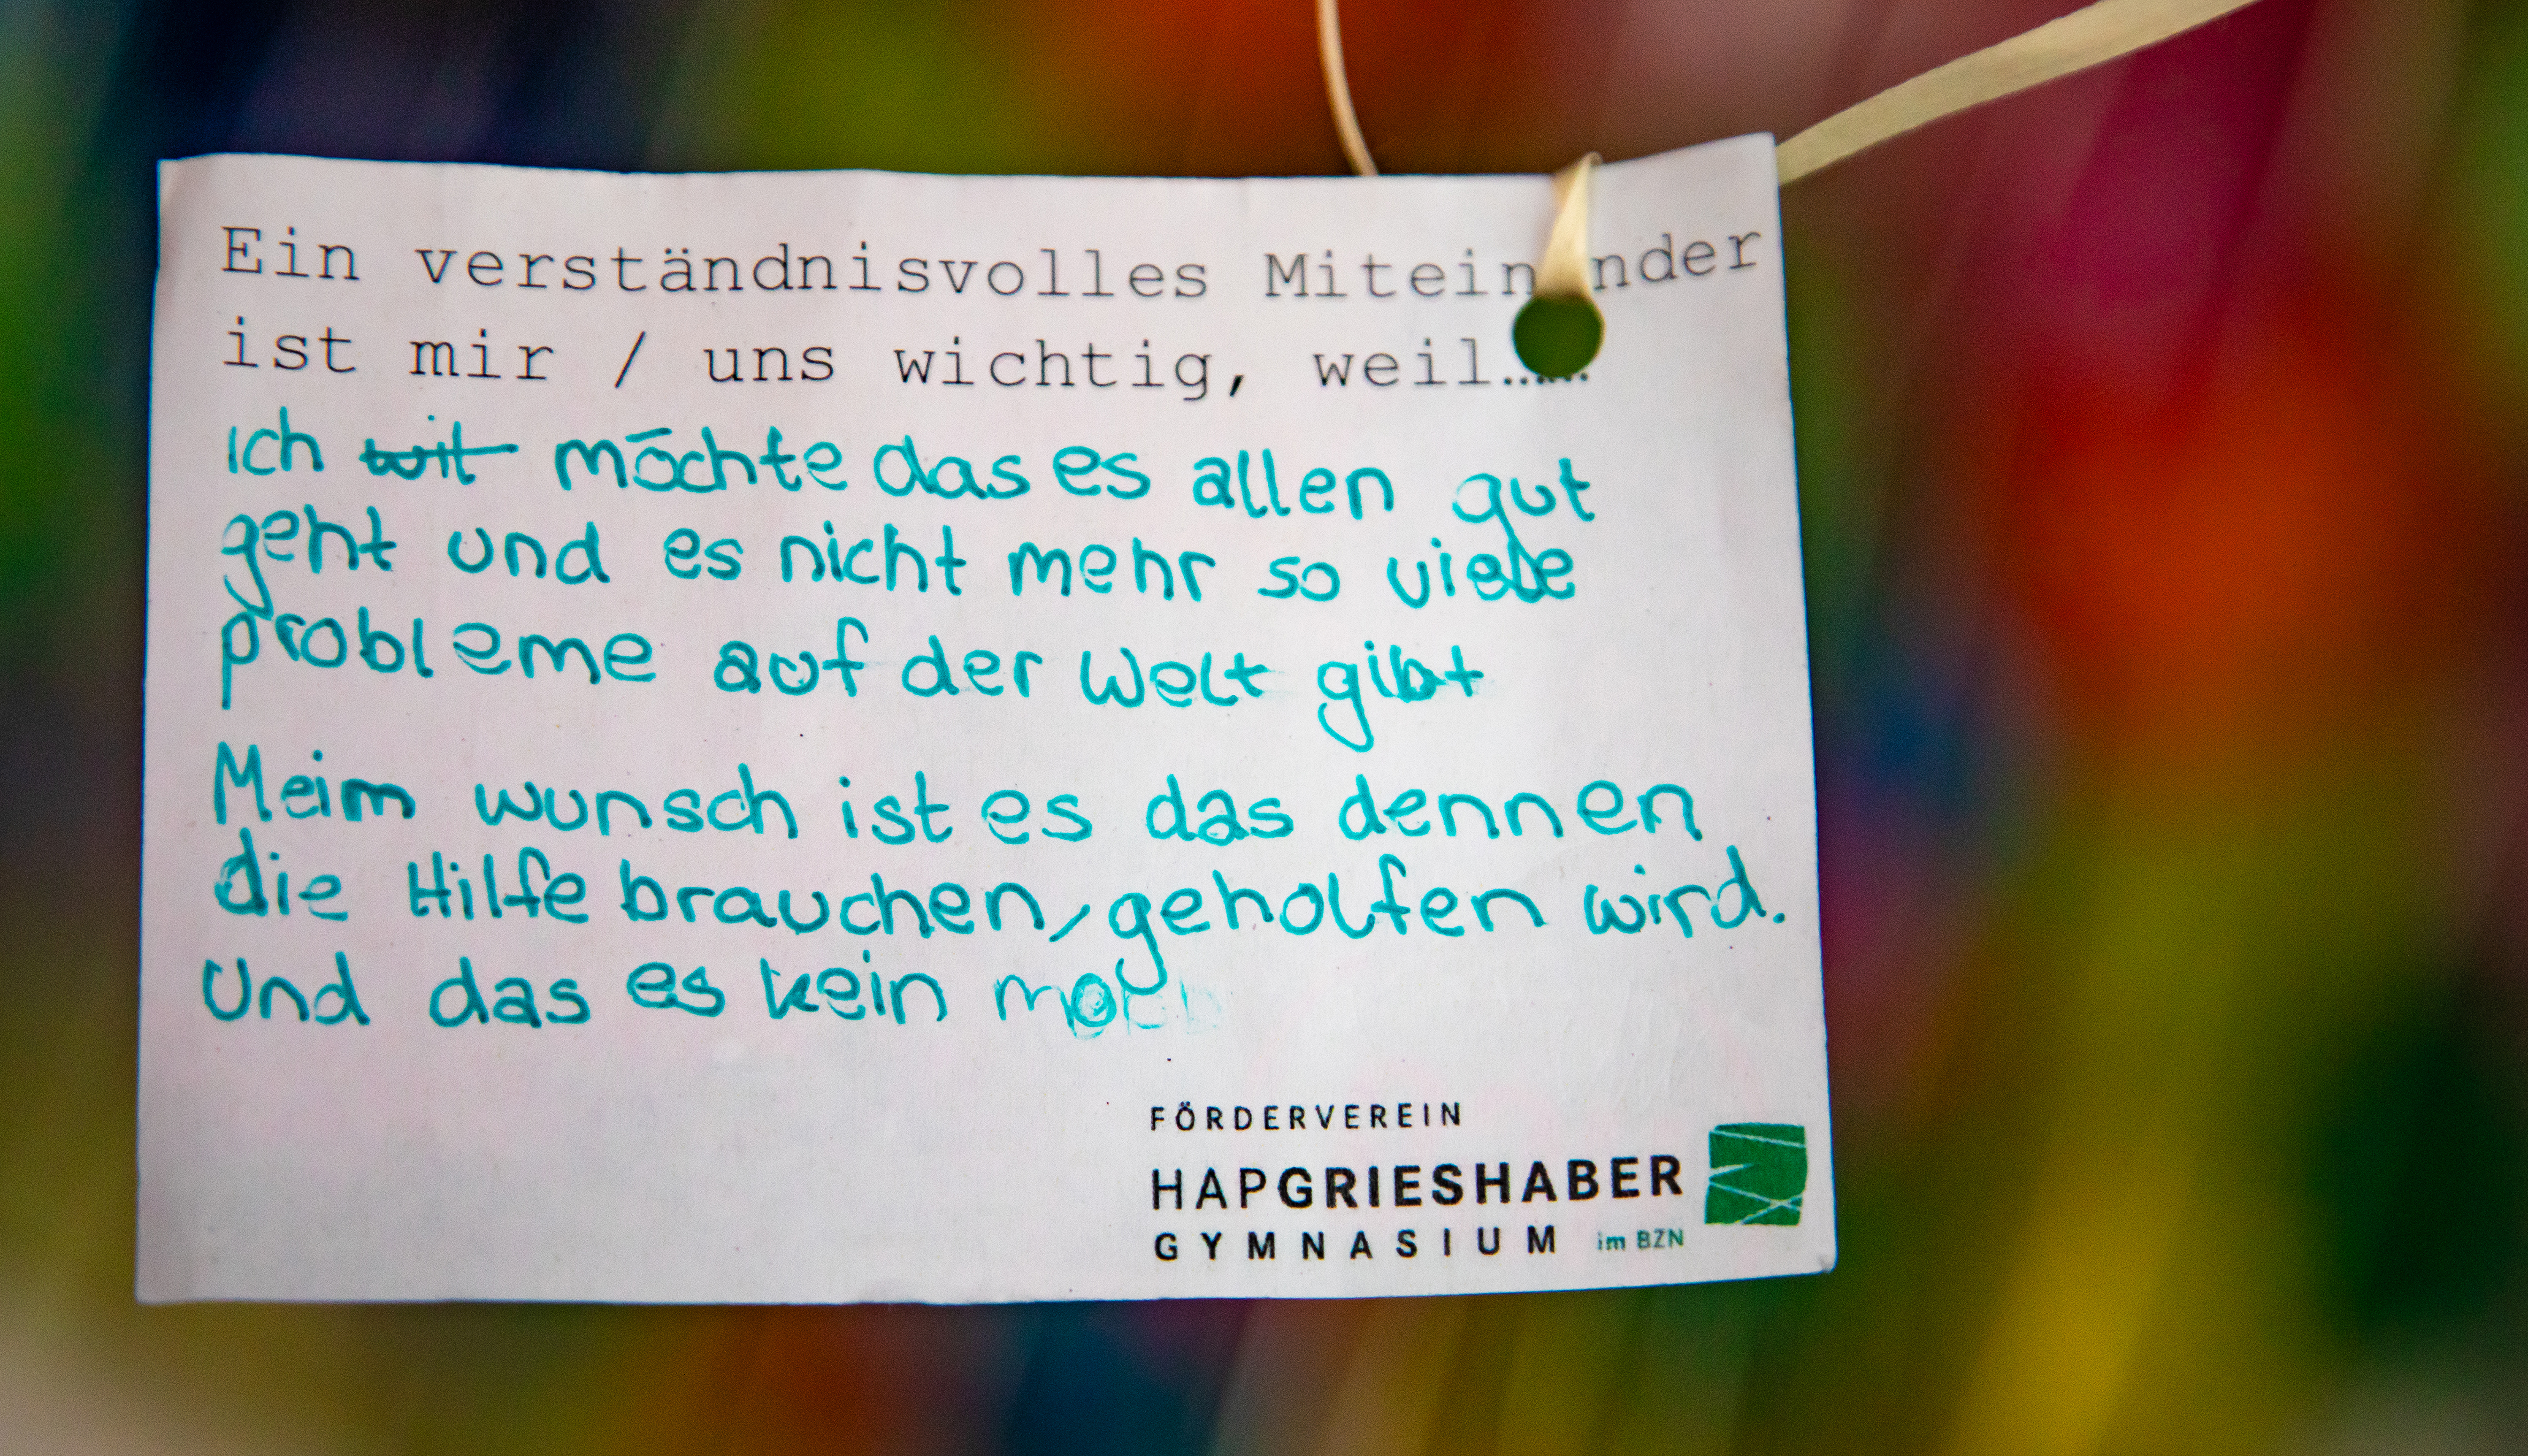 Ein verständnisvolles Miteinander
ist mir / uns wichtig, weil......
Ich möchte das es allen gut
geht und es nicht mehr so viele
probleme auf der Welt gibt
Meim wunsch ist es das dennen
die Hilfe brauchen, geholfen wird.
Und das es kein
FÖRDERVEREIN
HAPGRIESHABER
GYMNASIUM im BZN